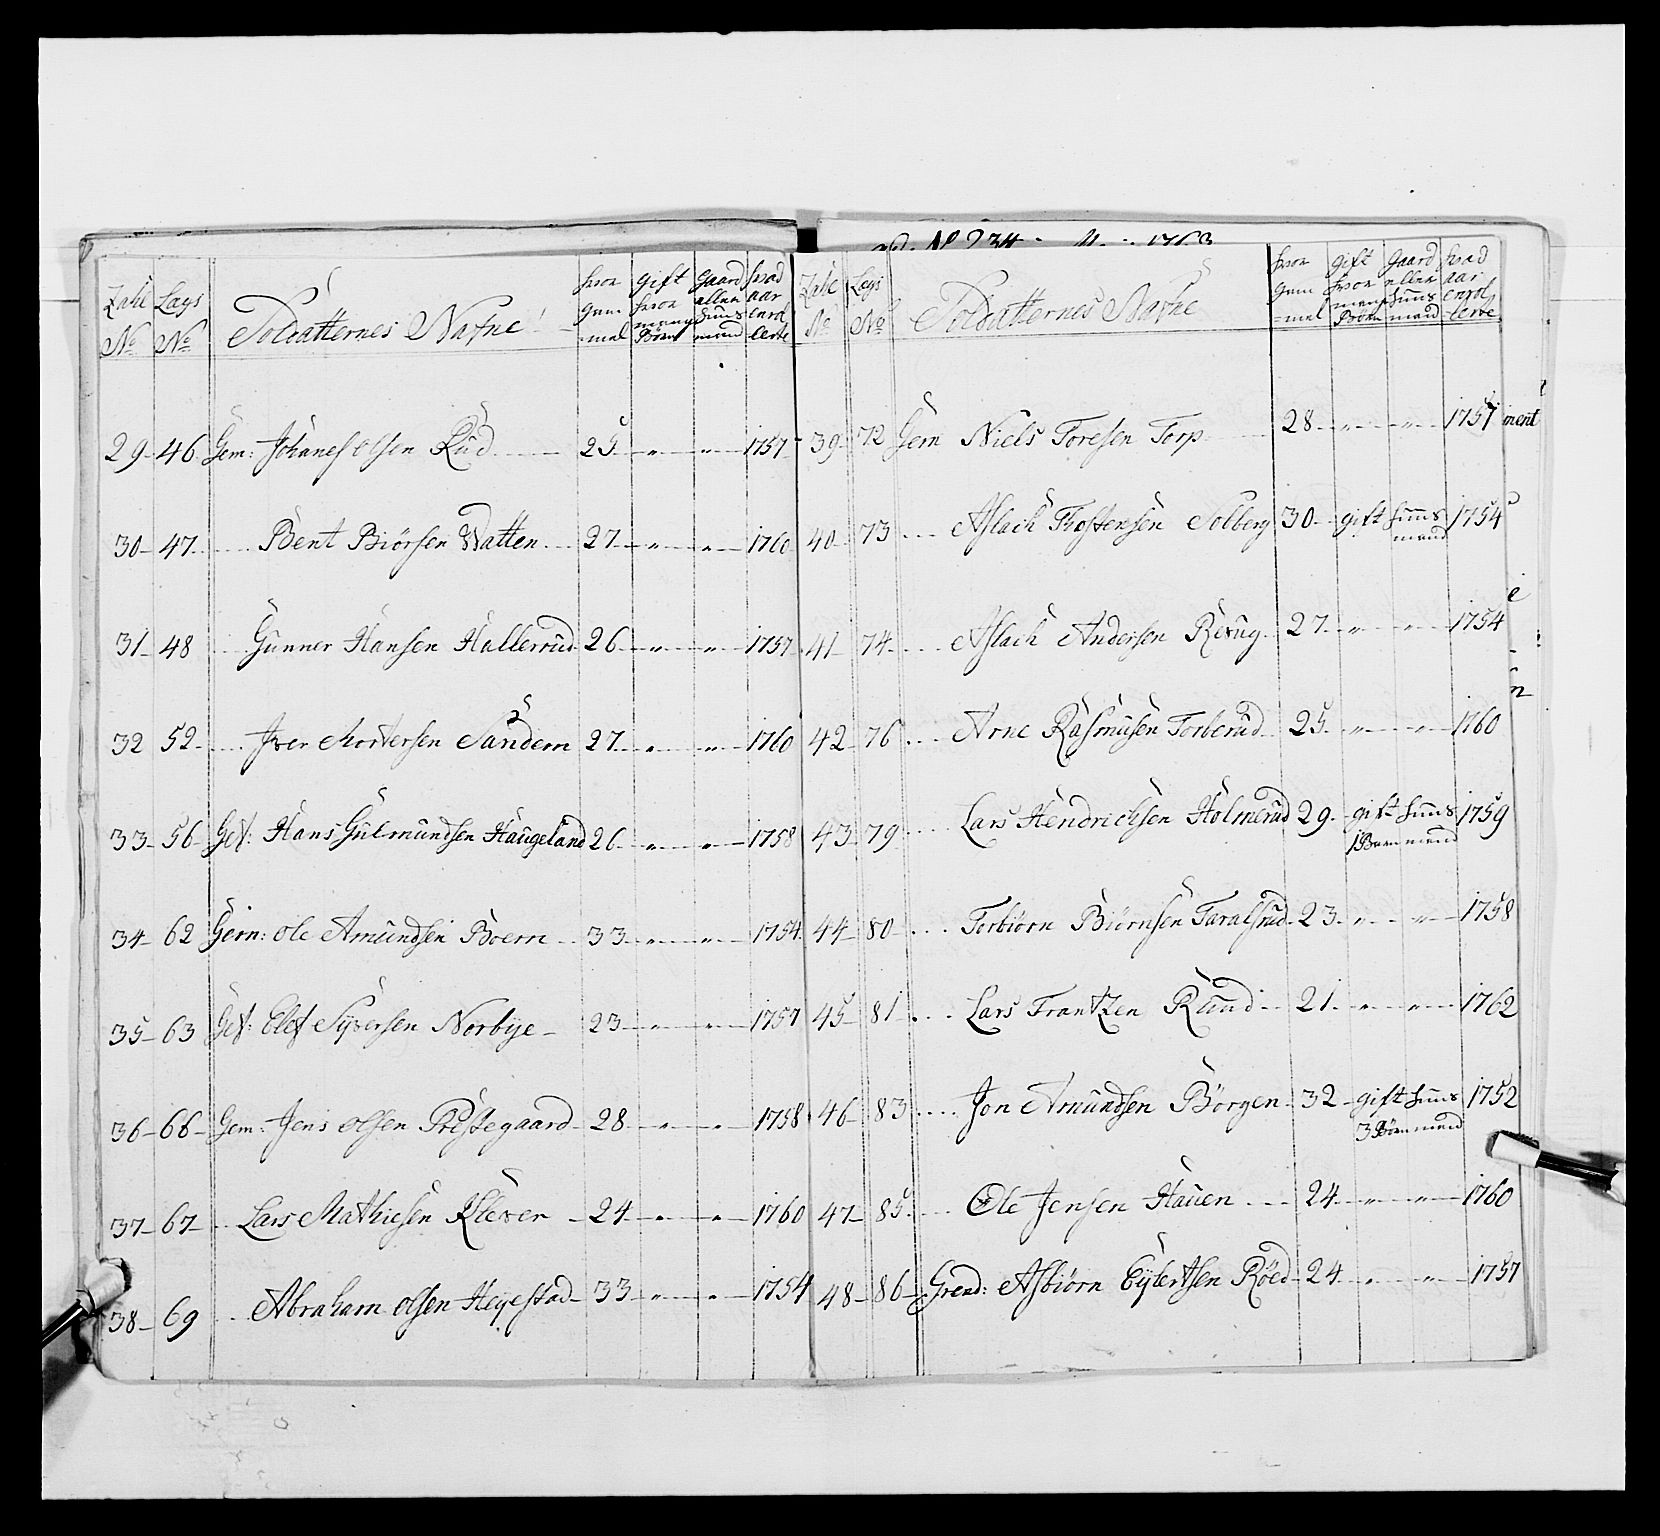 Zahl No | Lægs No | Soldatternes Nafne | hvor gam-mel | gift hvor mang Børn | Gaard eller Huus mand | hvad aar enrol lerte
29 46 Gem: Johanes Olsen Rud 25 " " 1757
30 47 Bent Biørsen Watten 27 " " 1760
31 48 Gunner Hansen Hallerrud 26 " " 1757
32 52 Iver Mortersen Sandem 27 " " 1760
33 56 Gef: Hans Gulmundsen Haugeland 26 " " 1758
34 62 Gem: Ole Amundsen Boern 33 " " 1754
35 63 Gef: Elef Syversen Norbye 23 " " 1757
36 66 Gem: Jens Olsen Prestegaard 28 " " 1758
37 67 Lars Mathiesen Klever 24 " " 1760
38 69 Abraham Olsen Heyestad 33 " " 1754
No 234 1763
Zahl No | Lægs No | Soldatternes Nafne | hvor gam-mel | gift hvor mang Børn | Gaard eller Huus mand | hvad aar enrol-lerte
39 72 Gem Niels Toresen Torp 28 " " 1757
ment
40 73 Aslach Thostensen Solberg 30 gift Huus mand 1754
41 74 Aslach Andersen Revug 27 " " 1754
42 76 Arne Rasmusen Torberud 25 " " 1760
43 79 Lars Hendrichsen Holmerud 29 gift 1 Barn Huus mand 1759
44 80 Torbiørn Biørnsen Taralsrud 23 " " 1758
45 81 Lars Frantzen Ruud 21 " " 1762
46 83 Jon Amundsen Børgen 32 gift 3 Børn Huus mand 1752
47 85 Ole Jensen Hauen 24 " " 1760
48 86 Grend: Asbiørn Eylertsen Røed 24 " " 1757